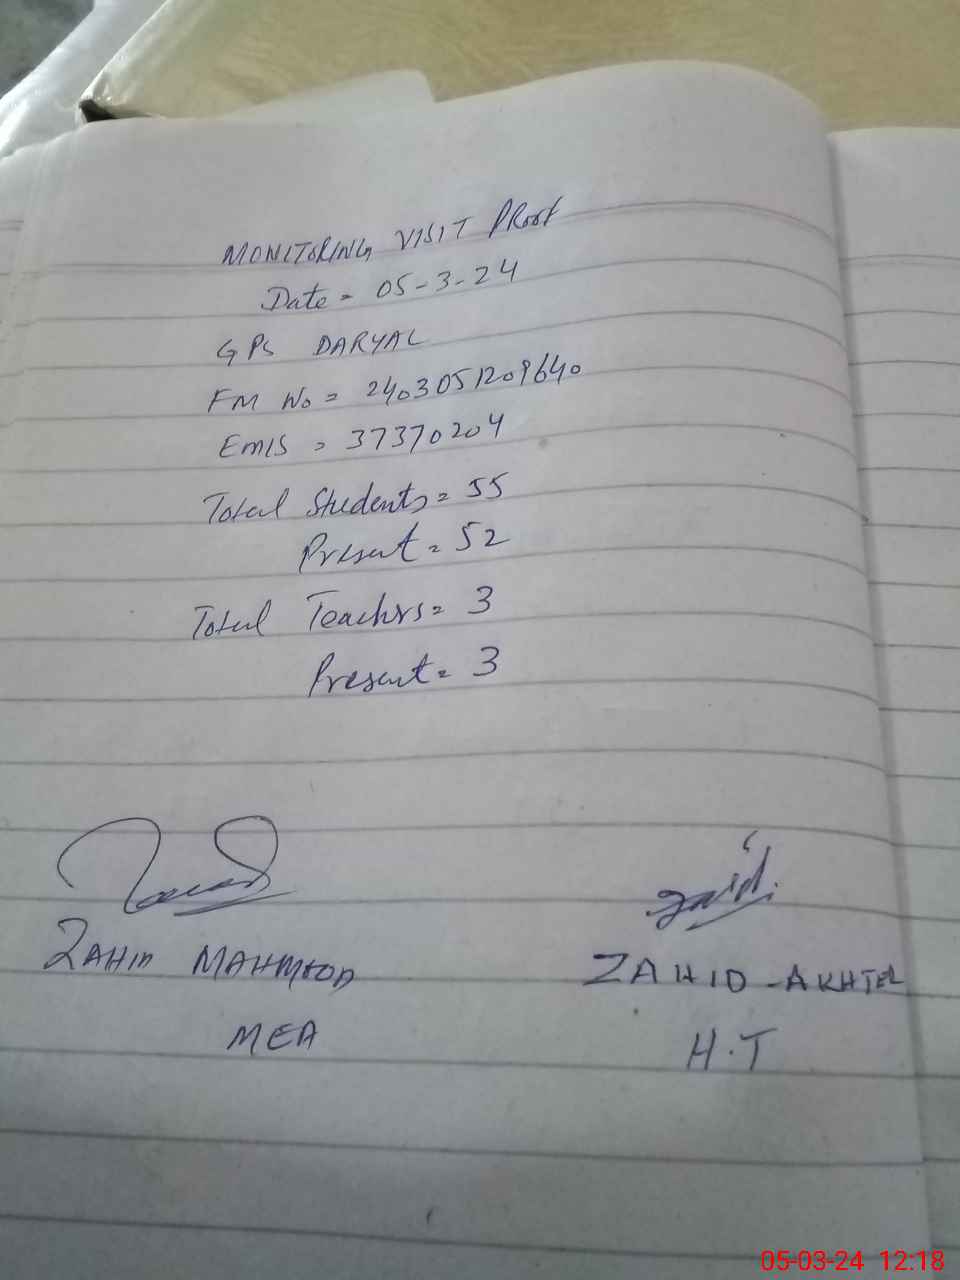 MONITORING VISIT PROOF
Date = 05-3-24
GPS DARYAL
FM No = 2403051209640
EMIS = 37370204
Total Students = 55
Present = 52
Total Teachrs = 3
Present = 3
ZAHID MAHMOOD
ZAHID - AKHTER
MEA
H.T
05-03-24 12:18